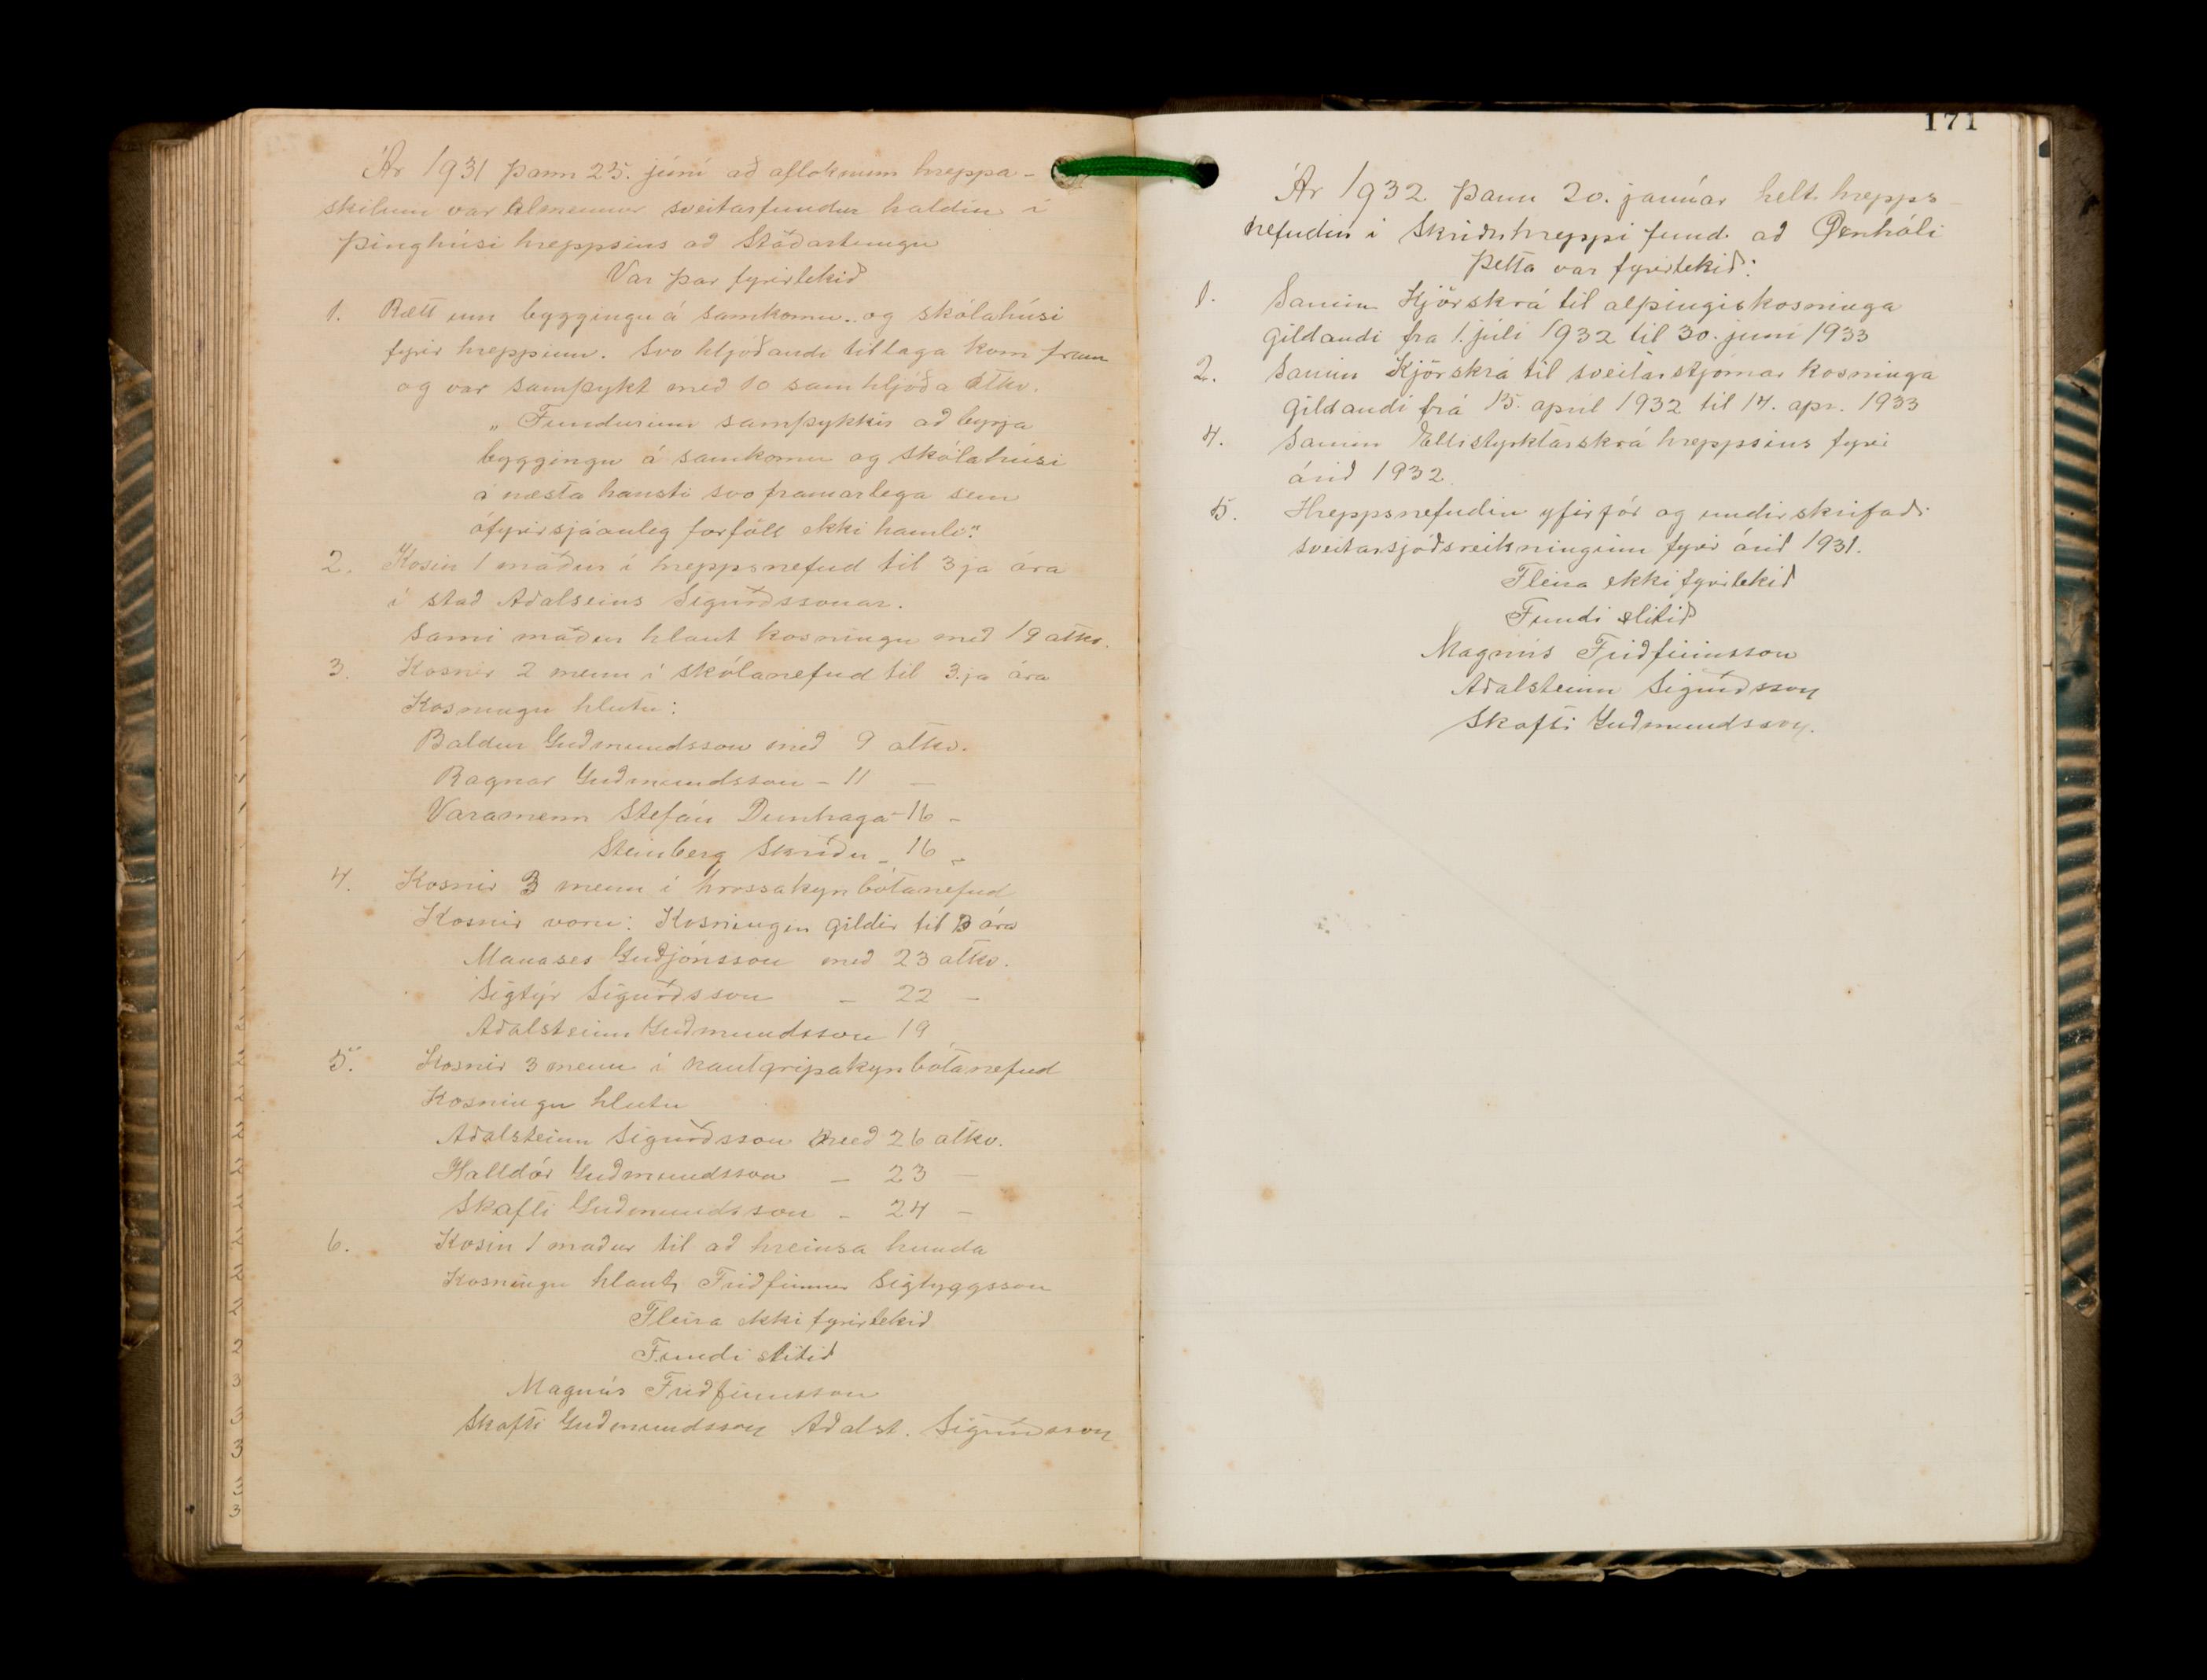 Ár 1931 þann 25. júní að afloknum hreppa-
skilum var almennur sveitarfundur haldin í
þinghúsi hreppsins að Staðartungu
Var þar fyrirtekið
1. Rætt um byggingu á samkomu- og skólahúsi
fyrir hreppinn. Svo hljóðandi tillaga kom fram
og var samþykt með 10 samhljóða atkv.
„Fundurinn samþykkir að byrja
byggingu á samkomu og skólahúsi
á næsta hausti svo framarlega sem
ófyrirsjáanleg forföll ekki hamli."
2. Kosin 1 maður í hreppsnefnd til 3ja ára
í stað Aðalseins Sigurðssonar.
Sami maður hlaut kosningu með 19 atkv.
3. Kosnir 2 menn í skólanefnd til 3.ja ára
Kosningu hlutu:
Baldur Guðmundsson með 9 atkv.
Ragnar Guðmundsson - 11 —
Varamenn Stefán Dunhaga - 16 -
Steinberg Skriðu - 16 -
4. Kosnir 3 menn í hrossakynbótanefnd
Kosnir voru: Kosningin gildir til 3 ára
Manases Guðjónsson með 23 atkv.
Sigtýr Sigurðsson — 22 —
Aðalsteinn Guðmundsson 19
5. Kosnir 3 menn í nautgripakynbótanefnd
Kosningu hlutu
Aðalsteinn Sigurðsson með 26 atkv.
Halldór Guðmundsson — 23 —
Skafti Guðmundsson - 24 —
6. Kosin 1 maður til að hreinsa hunda
Kosningu hlaut Friðfinnur Sigtyggsson
Fleira ekki fyrirtekið
Fundi slitið
Magnús Friðfinnsson
Skafti Guðmundsson Aðalst. Sigurðsson
171
Ár 1932 þann 20. janúar helt hrepps-
nefndin í Skriðuhreppi fund að
Þetta var fyrirtekið:
1. Samin Kjörskrá til alþingiskosninga
gildandi fra 1. júli 1932 til 30. juni 1933
2. Samin Kjörskrá til sveitarstjórnar kosninga
gildandi frá 15. april 1932 til 14. apr. 1933
4. Samin Ellistyrktarskrá hreppsins fyrir
árið 1932
5. Hreppsnefndin yfirfór og undirskrifaði
sveitarsjóðsreikninginn fyrir árið 1931.
Fleira ekki fyrirtekið
Fundi slitið
Magnús Friðfinnsson
Aðalsteinn Sigurðsson
Skafti Guðmundsson.